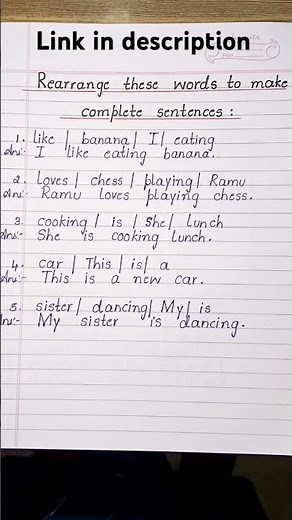 Link in description
Rearrange these words to make
complete sentences :
1. like | banana | I | eating
Ans:- I like eating banana.
2. Loves | chess | playing | Ramu
Ans:- Ramu loves playing chess.
3. cooking | is | She | Lunch
Ans:- She is cooking Lunch.
4. car | This | is | a
Ans:- This is a new car.
5. sister | dancing | My | is
Ans:- My sister is dancing.